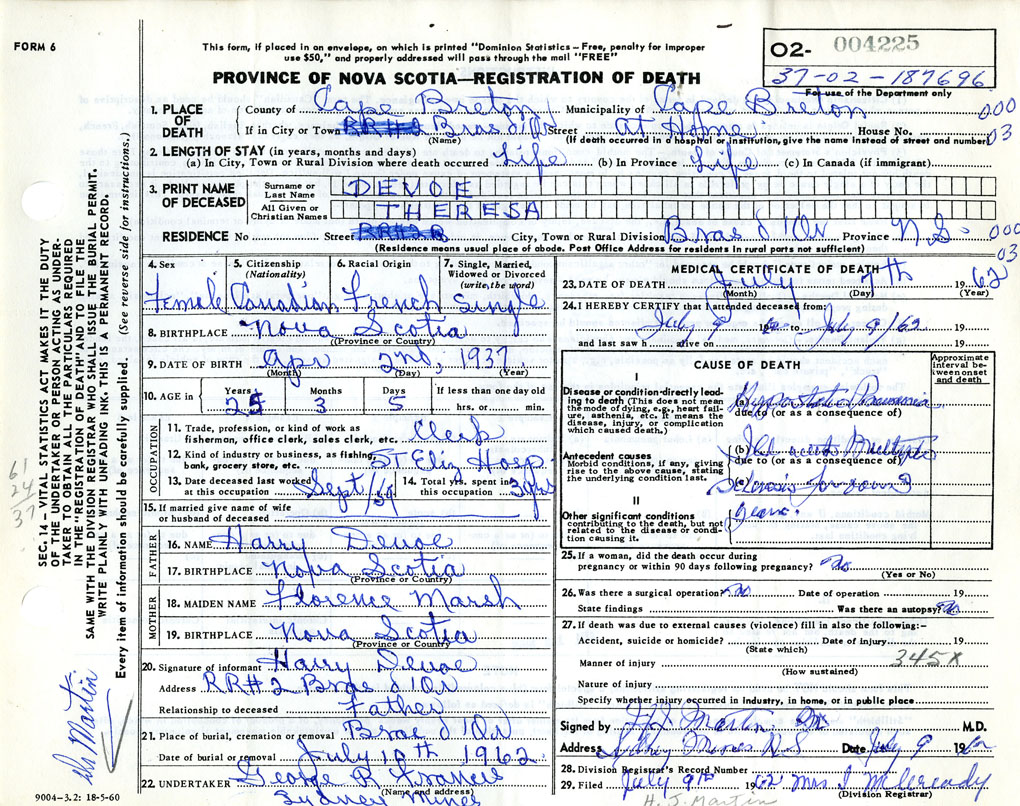 FORM 6
This form, if placed in an envelope, on which is printed "Dominion Statistics—Free, penalty for improper
use $50," and properly addressed will pass through the mail "FREE"
PROVINCE OF NOVA SCOTIA—REGISTRATION OF DEATH
O2- 004225
37-02-187696
For use of the Department only
1. PLACE OF DEATH
County of Cape Breton Municipality of Cape Breton 000
If in City or Town RR#2 Bras d'Or Street At Home House No. 03
(Name) (If death occurred in a hospital or institution, give the name instead of street and number)
2. LENGTH OF STAY (in years, months and days)
(a) In City, Town or Rural Division where death occurred Life (b) In Province Life (c) In Canada (if immigrant)
3. PRINT NAME OF DECEASED
Surname or Last Name DEVOE
All Given or Christian Names THERESA
RESIDENCE No Street RR#2 City, Town or Rural Division Bras d'Or Province N.S. 000
03
(Residence means usual place of abode. Post Office Address for residents in rural parts not sufficient)
4. Sex Female
5. Citizenship (Nationality) Canadian
6. Racial Origin French
7. Single, Married, Widowed or Divorced (write the word) Single
8. BIRTHPLACE Nova Scotia
(Province or Country)
9. DATE OF BIRTH Apr 2nd, 1937
(Month) (Day) (Year)
10. AGE in Years 25 Months 3 Days 5 If less than one day old hrs. or min.
OCCUPATION
11. Trade, profession, or kind of work as
fisherman, office clerk, sales clerk, etc. Clerk
12. Kind of industry or business, as fishing,
bank, grocery store, etc. ST Eliz Hosp.
13. Date deceased last worked
at this occupation Sept/59
14. Total yrs. spent in
this occupation 3 yrs
15. If married give name of wife
or husband of deceased
FATHER
16. NAME Harry Devoe
17. BIRTHPLACE Nova Scotia
(Province or Country)
MOTHER
18. MAIDEN NAME Florence Marsh
19. BIRTHPLACE Nova Scotia
(Province or Country)
20. Signature of informant Harry Devoe
Address RR#2 Bras d'Or
Relationship to deceased Father
21. Place of burial, cremation or removal Bras d'Or
Date of burial or removal July 10th 1962
22. UNDERTAKER George R Francis
(Name and address)
Sydney Mines
9004-3.2: 18-5-60
MEDICAL CERTIFICATE OF DEATH
23. DATE OF DEATH July 7th 1962
(Month) (Day) (Year)
24. I HEREBY CERTIFY that I attended deceased from:
July 9 19 to July 9/62 19
and last saw h alive on 19
CAUSE OF DEATH
Approximate interval between onset and death
I
Disease or condition directly leading to death (This does not mean the mode of dying, e.g., heart failure, asthenia, etc. It means the disease, injury, or complication which caused death.)
(a) Hypostatic Pneumonia
due to (or as a consequence of)
Antecedent causes
Morbid conditions, if any, giving rise to the above cause, stating the underlying condition last.
(b) Multiple
due to (or as a consequence of)
(c) Sclerosis for 3
years.
II
Other significant conditions
contributing to the death, but not related to the disease or condition causing it.
25. If a woman, did the death occur during
pregnancy or within 90 days following pregnancy? No
(Yes or No)
26. Was there a surgical operation? No Date of operation 19
State findings Was there an autopsy? No
27. If death was due to external causes (violence) fill in also the following:-
Accident, suicide or homicide? Date of injury 19
(State which)
Manner of injury 345x
(How sustained)
Nature of injury
Specify whether injury occurred in industry, in home, or in public place.
Signed by H.J. Martin M.D.
Address Sydney Mines N S Date July 9 1962
28. Division Registrar's Record Number
29. Filed July 9th 1962 Mrs I McCready
(Division Registrar)
H. J. Martin
SEC. 14 - VITAL STATISTICS ACT MAKES IT THE DUTY
OF THE UNDERTAKER OR PERSON ACTING AS UNDERTAKER
TO OBTAIN ALL THE PARTICULARS REQUIRED
IN THE "REGISTRATION OF DEATH" AND TO FILE THE
SAME WITH THE DIVISION REGISTRAR WHO SHALL ISSUE THE BURIAL PERMIT.
WRITE PLAINLY WITH UNFADING INK. THIS IS A PERMANENT RECORD.
Every item of information should be carefully supplied. (See reverse side for instructions.)
61
24
37
Dr Martin